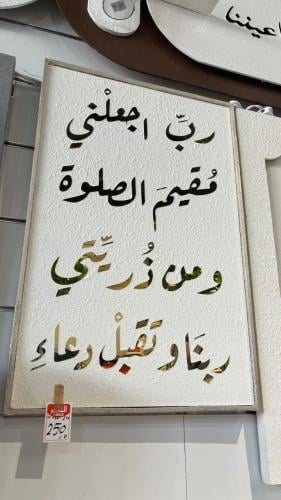 ربِّ اجعلْني
مُقيمَ الصلوة
ومن ذُريَّتي
ربنَا وتقبلْ دعاءِ
250